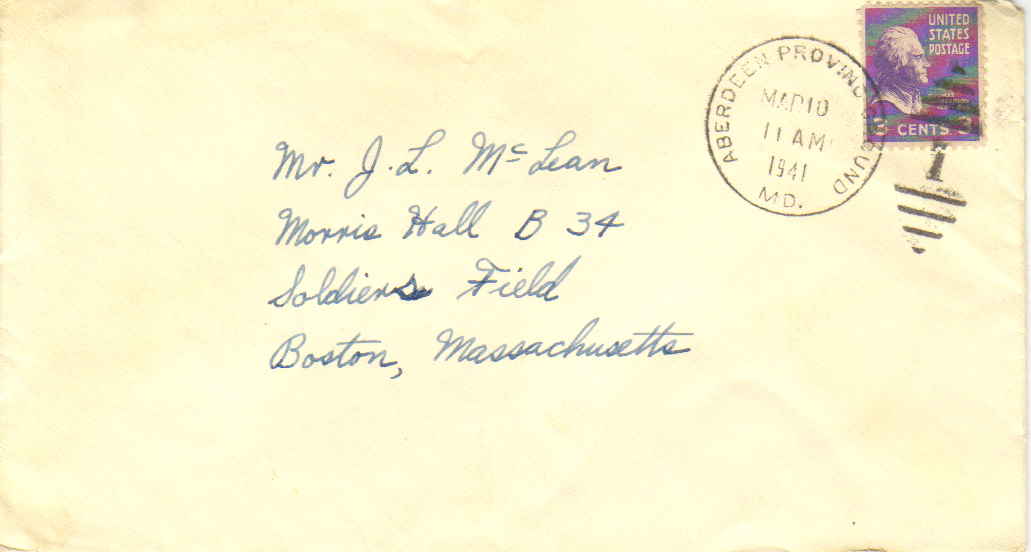 UNITED
STATES
POSTAGE
3 CENTS 3
ABERDEEN PROVING GROUND
MAR 10
11 AM
1941
MD.
Mr. J. L. McLean
Morris Hall B 34
Soldiers Field
Boston, Massachusetts